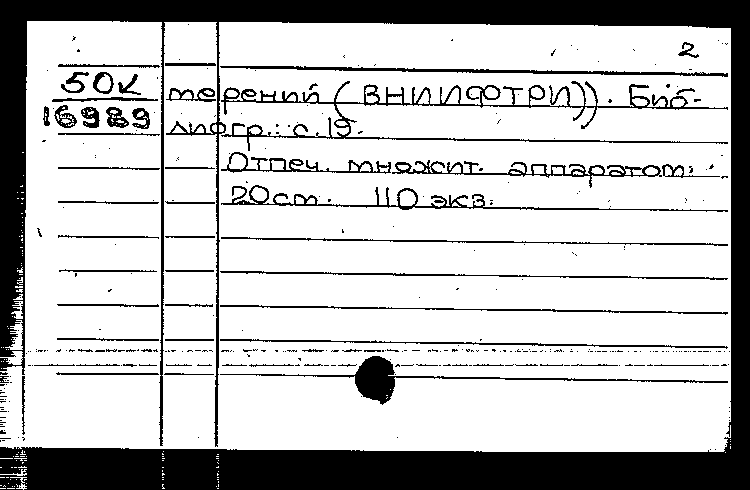 2
50К
16989
терений (ВНИИФТРИ)). Биб-
лиогр.: с. 19.
Отпеч. множит. аппаратом.
20см. 110 экз.